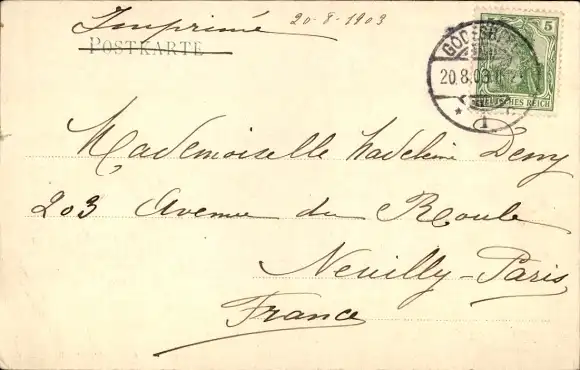 Imprimé 20-8-1903
POSTKARTE
5
GODESBERG
20.8.03
DEUTSCHES REICH
1
Mademoiselle Madeleine
203 Avenue du Roule
Neuilly-Paris
France